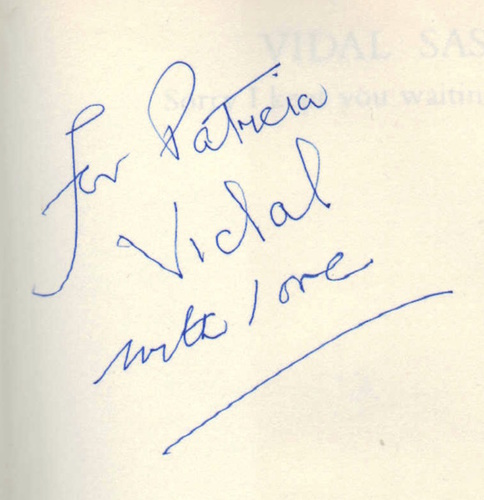 VIDAL SAS
Sorry I kept you waitin
For Patricia
Vidal
with love